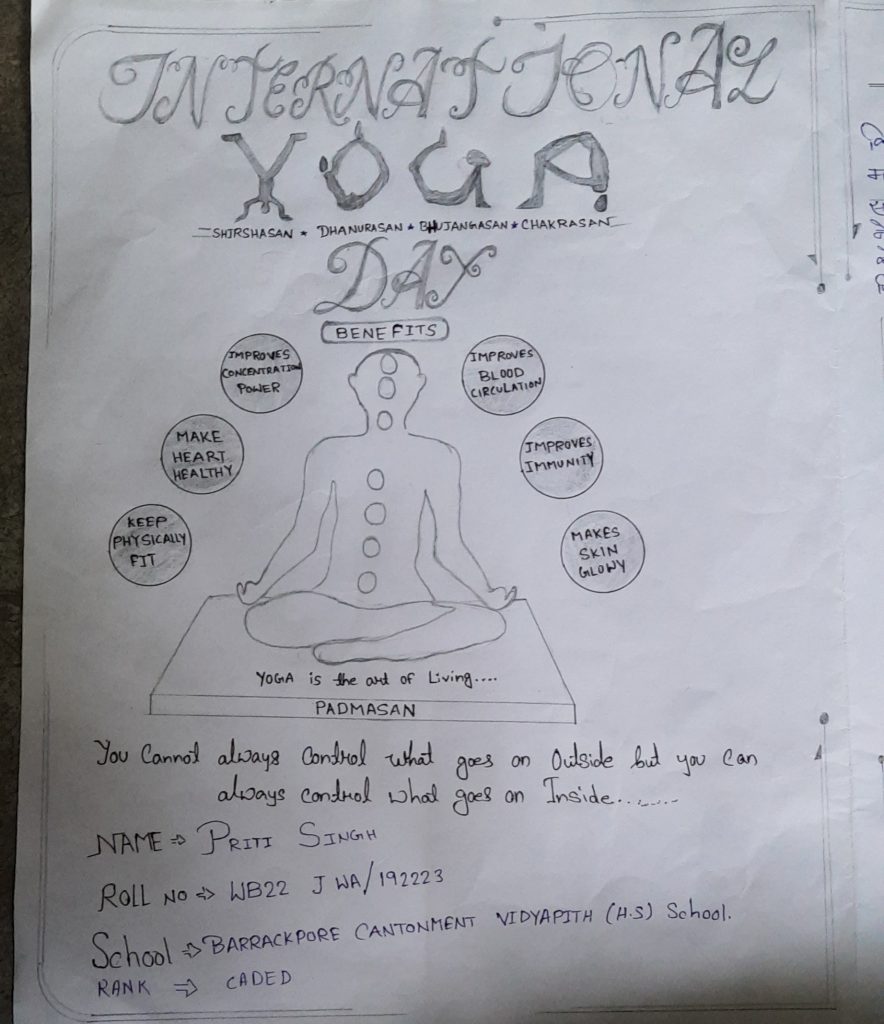 INTERNATIONAL
YOGA
SHIRSHASAN ★ DHANURASAN ★ BHUJANGASAN ★ CHAKRASAN
DAY
BENEFITS
IMPROVES
CONCENTRATION
POWER
IMPROVES
BLOOD
CIRCULATION
MAKE
HEART
HEALTHY
IMPROVES
IMMUNITY
KEEP
PHYSICALLY
FIT
MAKES
SKIN
GLOWY
YOGA is the art of Living....
PADMASAN
You Cannot always Control what goes on Outside but you can
always control what goes on Inside........
NAME ⇒ PRITI SINGH
ROLL NO ⇒ WB22 J WA/192223
School ⇒ BARRACKPORE CANTONMENT VIDYAPITH (H.S) School.
RANK ⇒ CADED